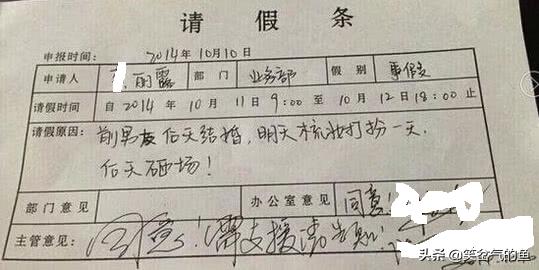 请假条
申报时间: 2014年10月10日
申请人 丽露 部门 业务部 假别 事假
请假时间 自2014年10月11日9:00至10月12日18:00止
请假原因: 前男友后天结婚,明天梳妆打扮一天,
后天砸场!
部门意见 办公室意见 同意!
主管意见: 同意!需支援请告知!
头条 @笑谷气的鱼